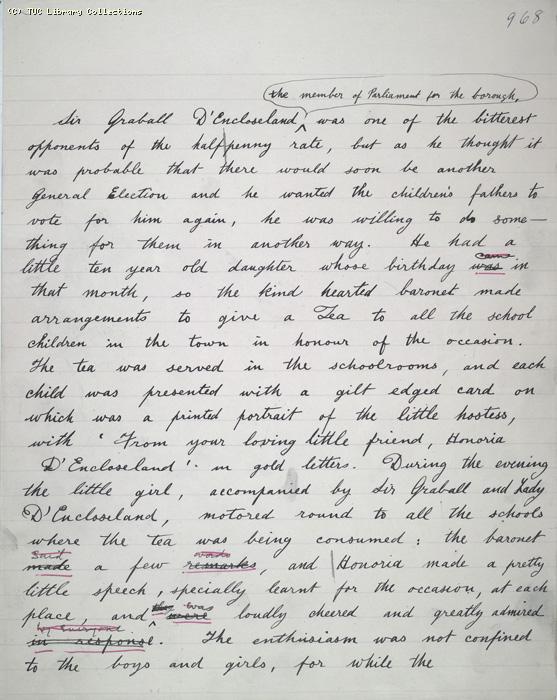 (C) TUC Library Collections
968
the member of Parliament for the borough,
Sir Graball D'Encloseland ^ was one of the bitterest
opponents of the halfpenny rate, but as he thought it
was probable that there would soon be another
General Election and he wanted the children's fathers to
vote for him again, he was willing to do some-
thing for them in another way. He had a
came
little ten year old daughter whose birthday was in
that month, so the kind hearted baronet made
arrangements to give a Tea to all the school
children in the town in honour of the occasion.
The tea was served in the schoolrooms, and each
child was presented with a gilt edged card on
which was a printed portrait of the little hostess,
with 'From your loving little friend, Honoria
D'Encloseland'. in gold letters. During the evening
the little girl, accompanied by Sir Graball and Lady
D'Encloseland, motored round to all the schools
where the tea was being consumed: the baronet
said words
made a few remarks, and Honoria made a pretty
little speech, specially learnt for the occasion, at each
was
place, and ^ were loudly cheered and greatly admired
in response. The enthusiasm was not confined
to the boys and girls, for while the